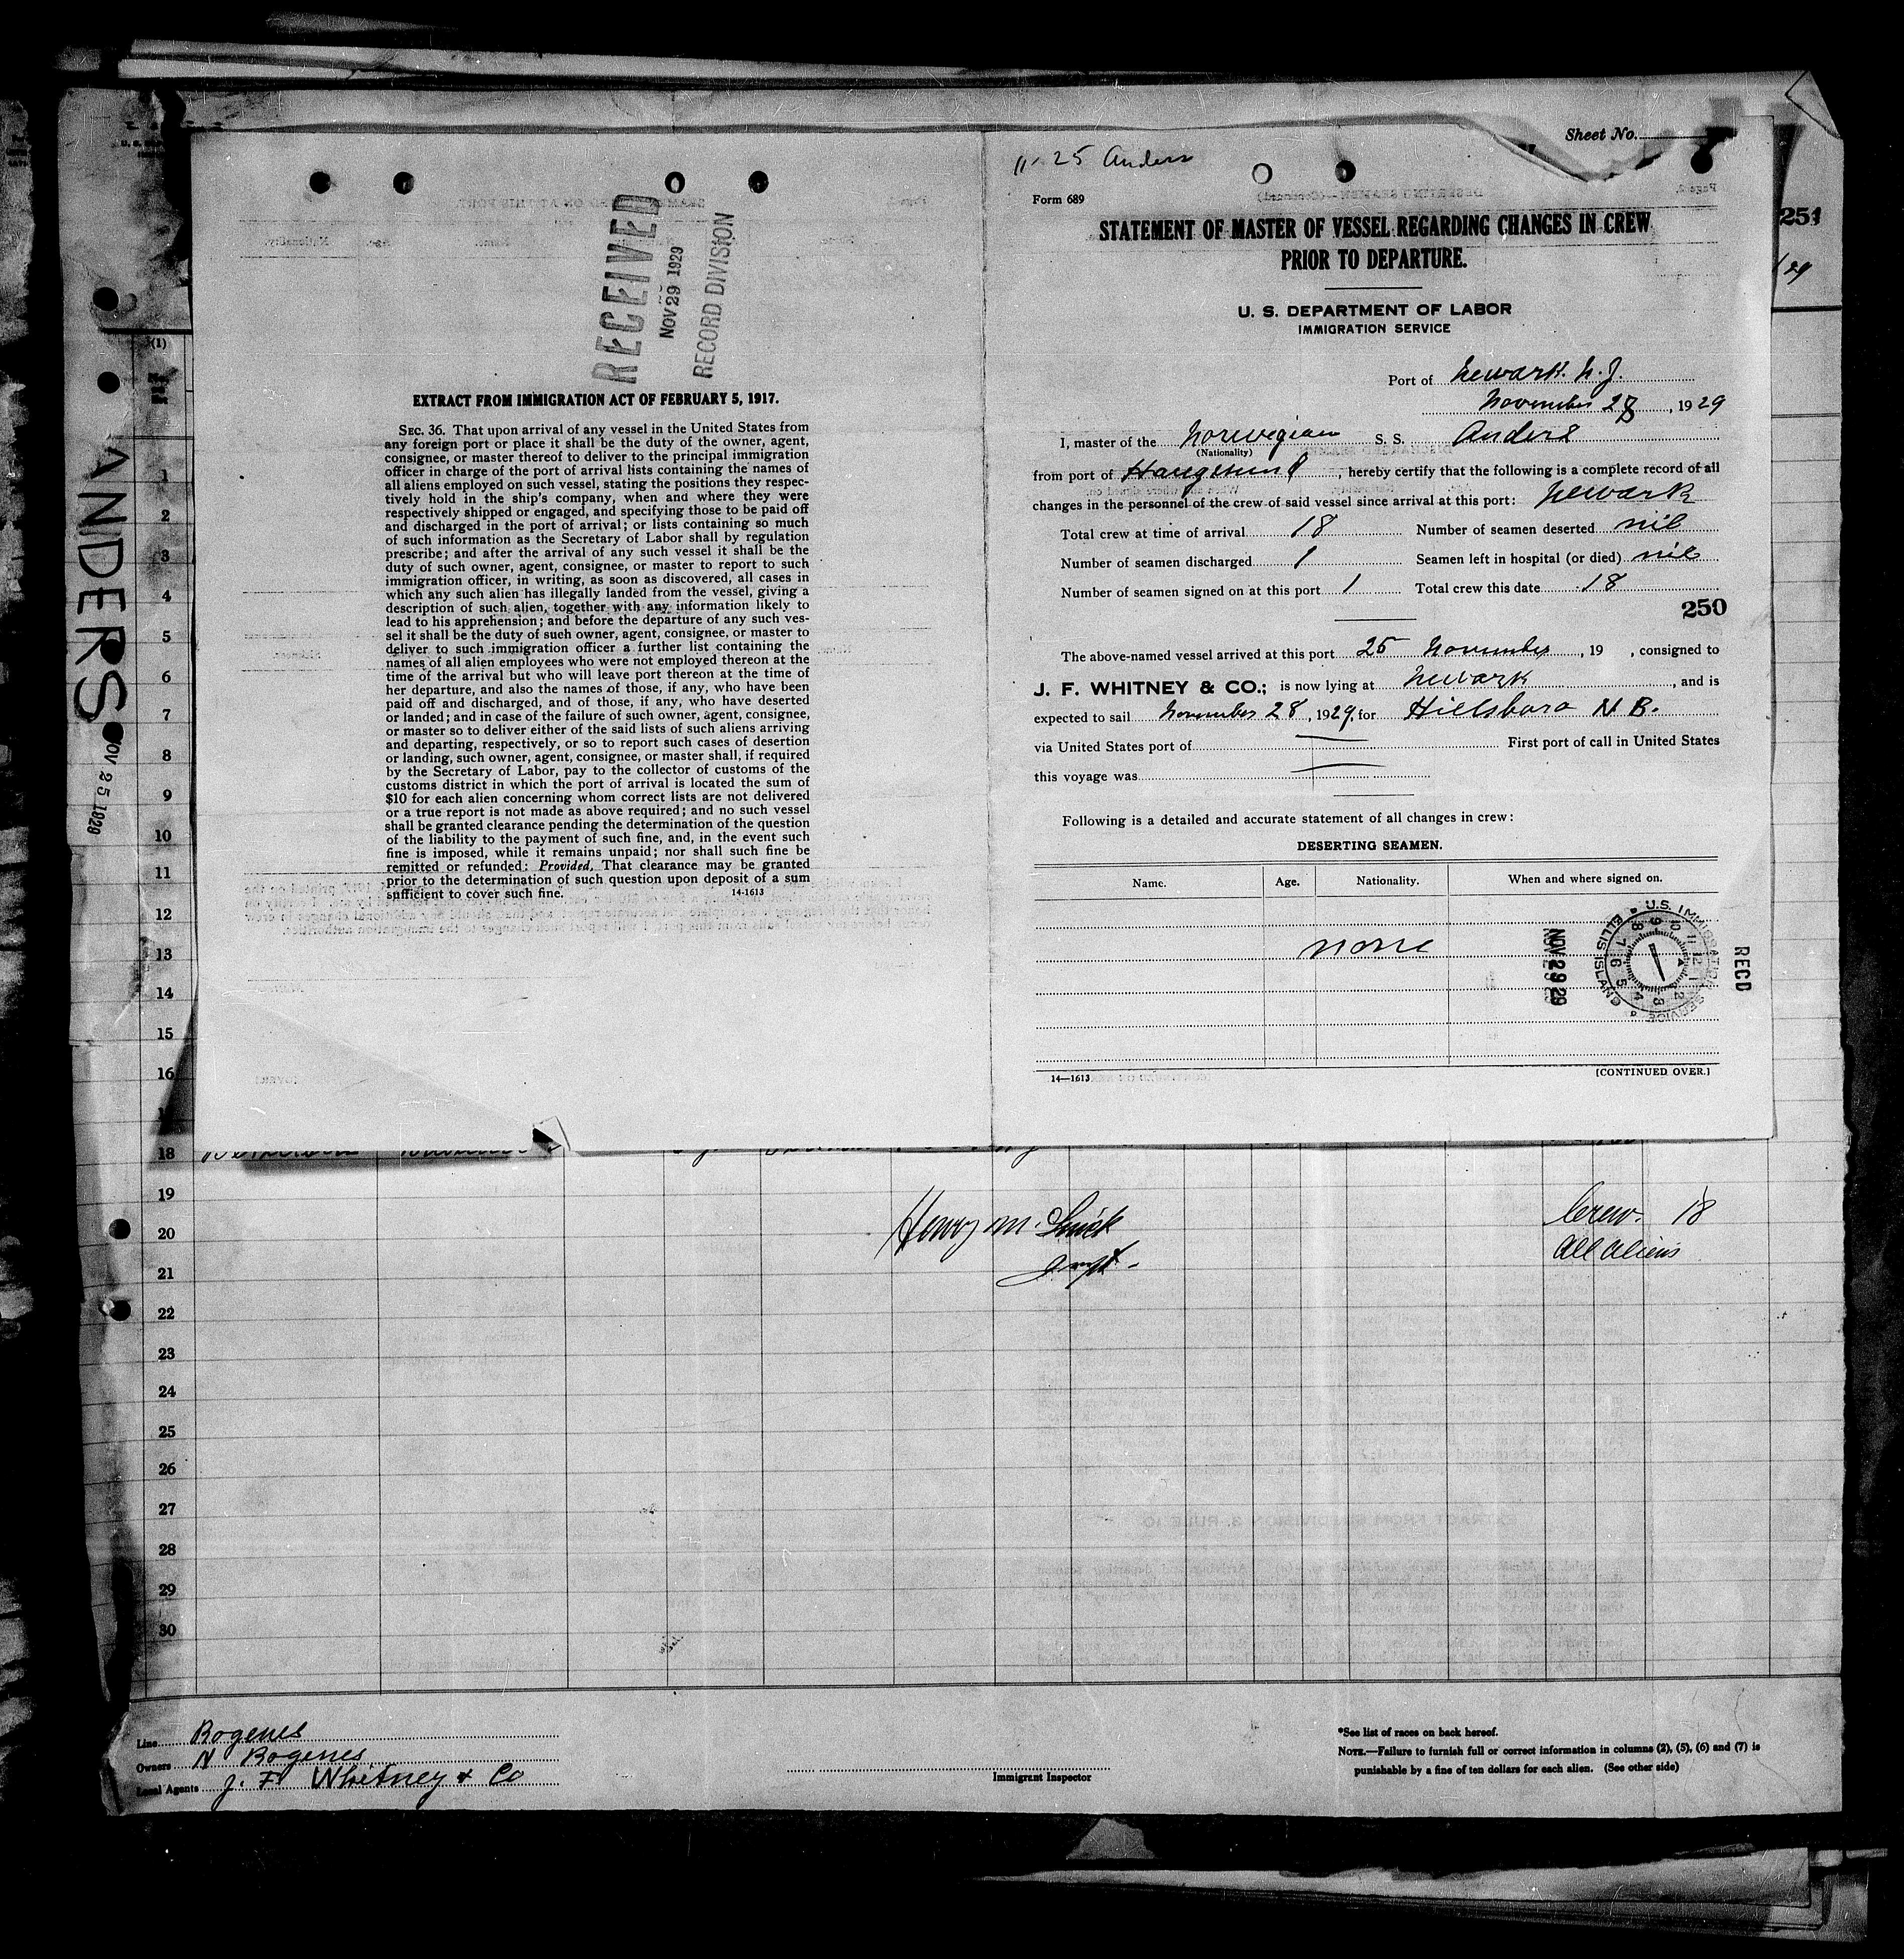 Sheet No.
251
11-25 Anders
Form 689
STATEMENT OF MASTER OF VESSEL REGARDING CHANGES IN CREW
PRIOR TO DEPARTURE.
U. S. DEPARTMENT OF LABOR
IMMIGRATION SERVICE
Port of Newark. N. J.
November 28, 1929
I, master of the Norwegian S. S. Anders
(Nationality)
from port of Haugesund, hereby certify that the following is a complete record of all
changes in the personnel of the crew of said vessel since arrival at this port: Newark
Total crew at time of arrival 18 Number of seamen deserted nil
Number of seamen discharged 1 Seamen left in hospital (or died) nil
Number of seamen signed on at this port 1 Total crew this date 18
250
The above-named vessel arrived at this port 25 November, 19 , consigned to
J. F. WHITNEY & CO.; is now lying at Newark, and is
expected to sail November 28, 1929, for Hillsboro N B.
via United States port of First port of call in United States
this voyage was
Following is a detailed and accurate statement of all changes in crew:
DESERTING SEAMEN.
Name. Age. Nationality. When and where signed on.
none
U.S. IMMIGRATION SERVICE
ELLIS ISLAND
NOV 29 29
RECD
14—1613
(CONTINUED OVER.)
RECEIVED
NOV 29 1929
RECORD DIVISION
EXTRACT FROM IMMIGRATION ACT OF FEBRUARY 5, 1917.
SEC. 36. That upon arrival of any vessel in the United States from
any foreign port or place it shall be the duty of the owner, agent,
consignee, or master thereof to deliver to the principal immigration
officer in charge of the port of arrival lists containing the names of
all aliens employed on such vessel, stating the positions they respec-
tively hold in the ship's company, when and where they were
respectively shipped or engaged, and specifying those to be paid off
and discharged in the port of arrival; or lists containing so much
of such information as the Secretary of Labor shall by regulation
prescribe; and after the arrival of any such vessel it shall be the
duty of such owner, agent, consignee, or master to report to such
immigration officer, in writing, as soon as discovered, all cases in
which any such alien has illegally landed from the vessel, giving a
description of such alien, together with any information likely to
lead to his apprehension; and before the departure of any such ves-
sel it shall be the duty of such owner, agent, consignee, or master to
deliver to such immigration officer a further list containing the
names of all alien employees who were not employed thereon at the
time of the arrival but who will leave port thereon at the time of
her departure, and also the names of those, if any, who have been
paid off and discharged, and of those, if any, who have deserted
or landed; and in case of the failure of such owner, agent, consignee,
or master so to deliver either of the said lists of such aliens arriving
and departing, respectively, or so to report such cases of desertion
or landing, such owner, agent, consignee, or master shall, if required
by the Secretary of Labor, pay to the collector of customs of the
customs district in which the port of arrival is located the sum of
$10 for each alien concerning whom correct lists are not delivered
or a true report is not made as above required; and no such vessel
shall be granted clearance pending the determination of the question
of the liability to the payment of such fine, and, in the event such
fine is imposed, while it remains unpaid; nor shall such fine be
remitted or refunded: Provided, That clearance may be granted
prior to the determination of such question upon deposit of a sum
sufficient to cover such fine.
14-1613
ANDERS
NOV 25 1929
(1)
1
2
3
4
5
6
7
8
9
10
11
12
13
14
15
16
18
19
20
21
22
23
24
25
26
27
28
29
30
Henry M.
Crew. 18
All aliens
Line Rogenes
Owners N Rogenes
Local Agents J. F. Whitney & Co
Immigrant Inspector
*See list of races on back hereof.
NOTE.—Failure to furnish full or correct information in columns (2), (5), (6) and (7) is
punishable by a fine of ten dollars for each alien. (See other side)